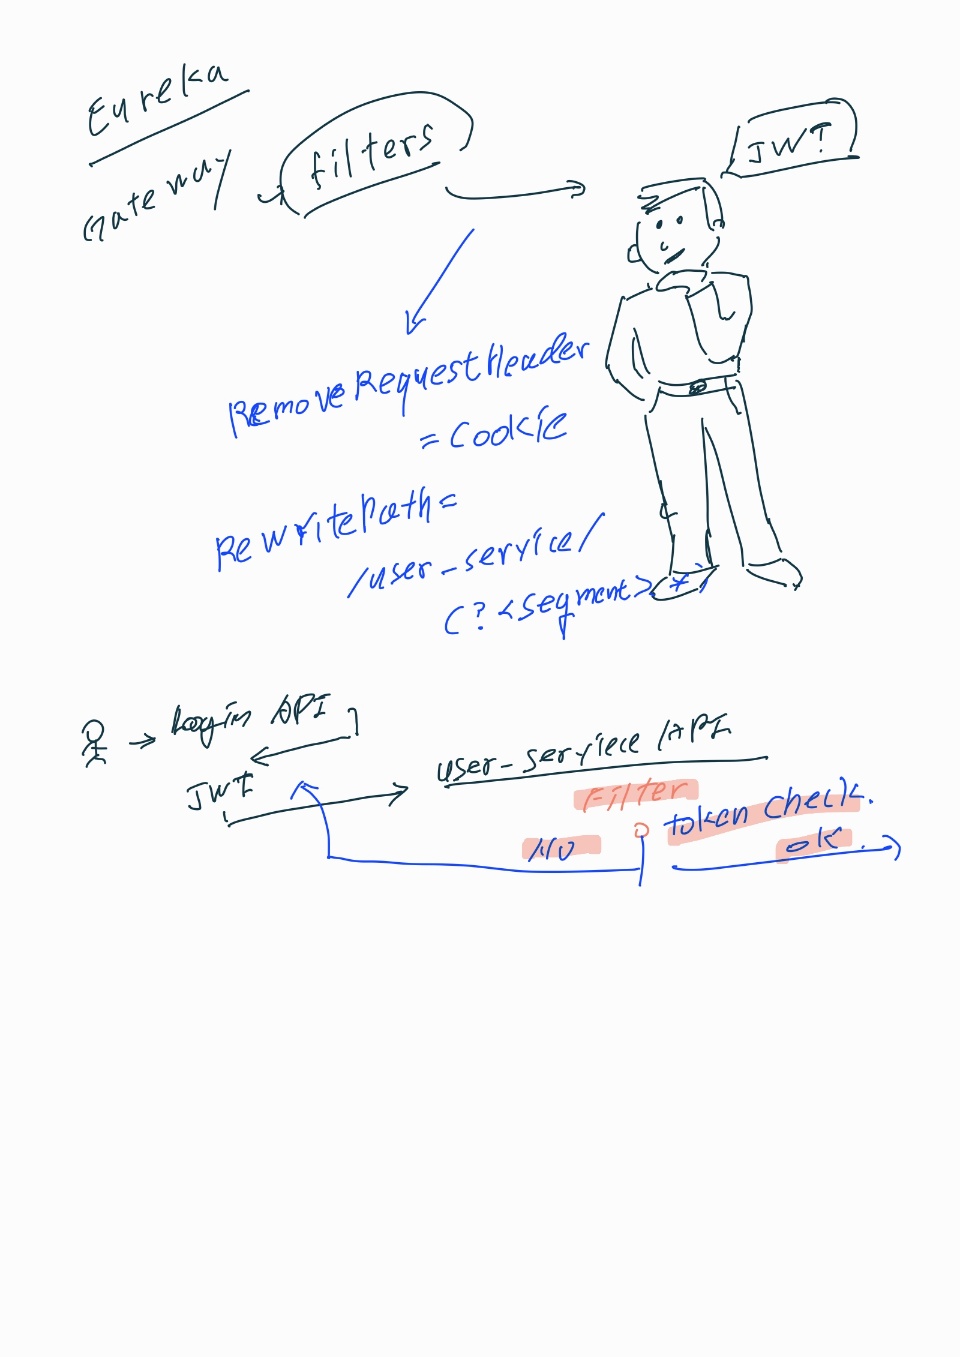 Eureka
Gateway
filters
JWT?
RemoveRequestHeader
= Cookie
RewritePath=
/user-service/
(?<segment>*)
Login API
JWT
user-serviece /API
Filter
token check.
NO
ok.